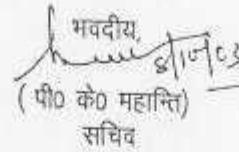 भवदीय,
( पी0 के0 महान्ति)
सचिव